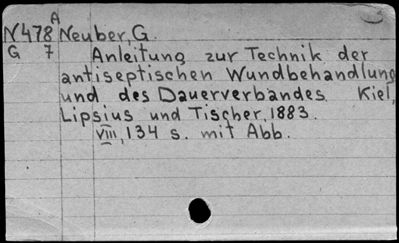 A
N478 Neuber, G.
G 7 Anleitung zur Technik der
antiseptischen Wundbehandlung
und des Dauerverbandes. Kiel,
Lipsius und Tischer, 1883.
VIII, 134 s. mit Abb.